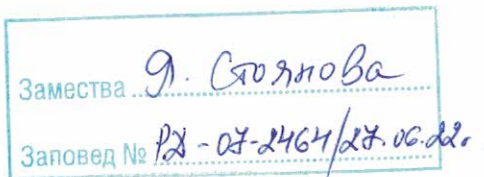 Замества Я. Стоянова
Заповед № РД-07-2464/27.06.22г.